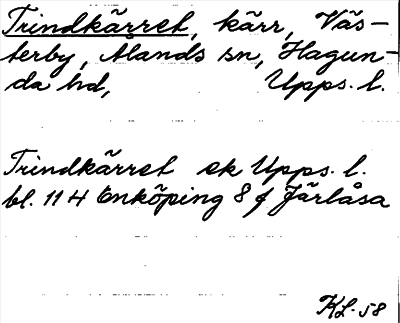 Trindkärret, kärr, Väs-
terby, Ålands sn, Hagun-
da hd, Upps. l.
Trindkärret ek Upps. l.
bl. 11 4 Enköping 8 f Järlåsa
KL. 58